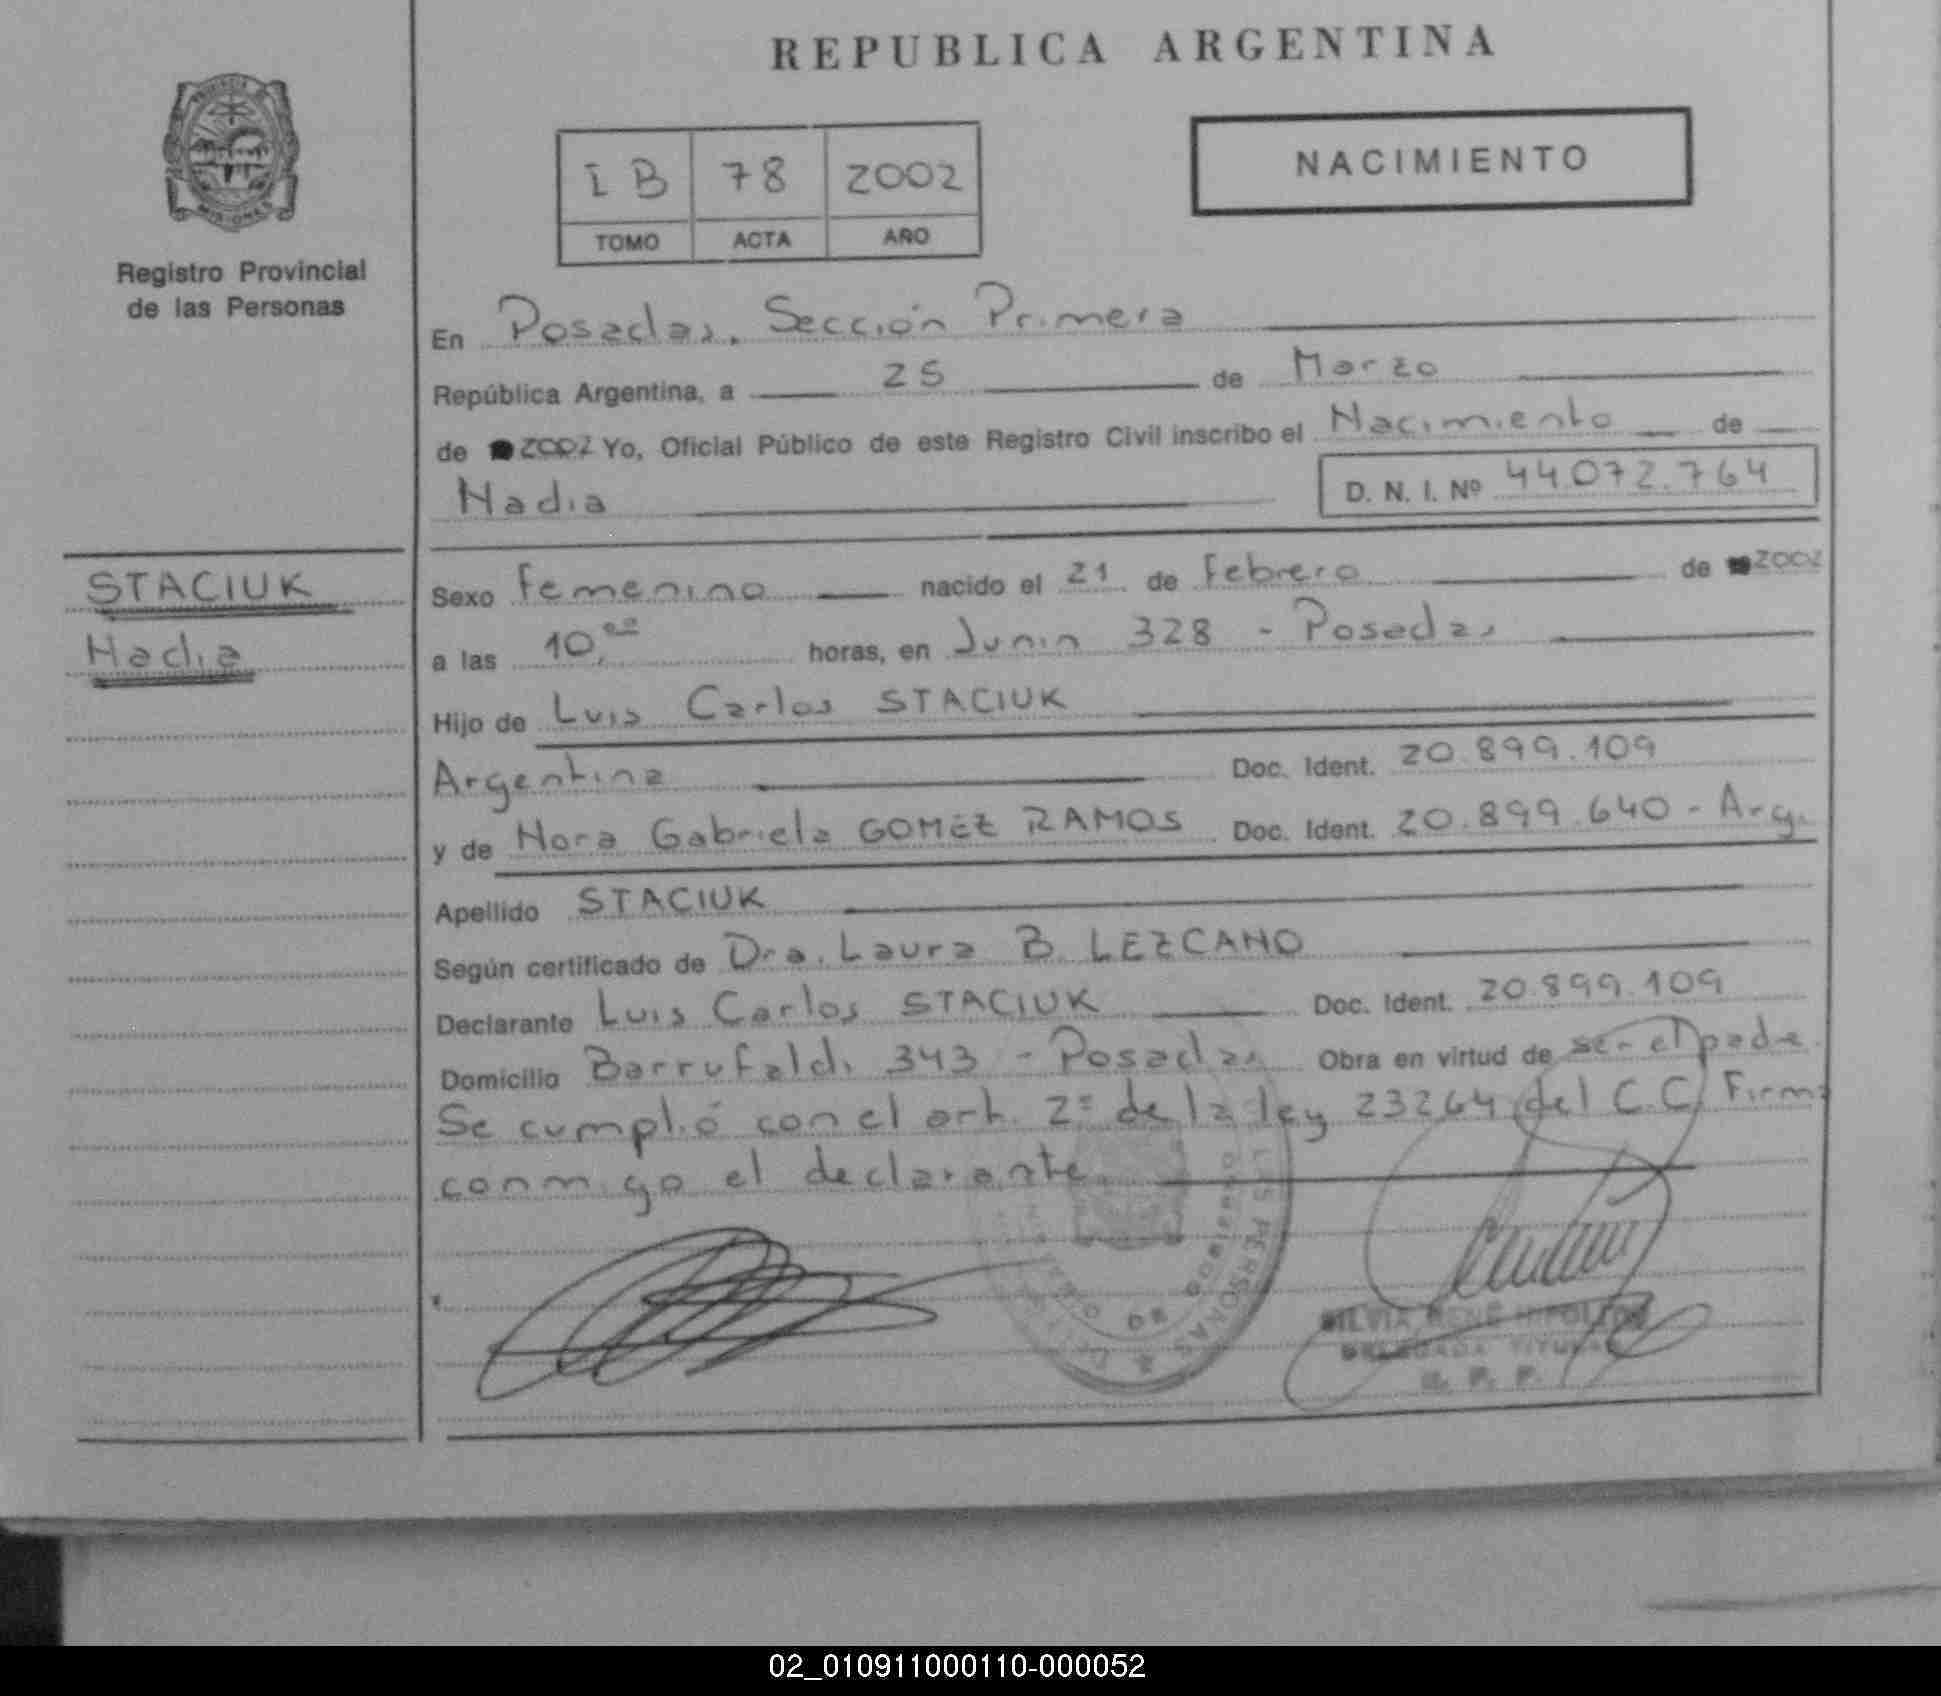 REPUBLICA ARGENTINA
PROVINCIA DE
MISIONES
Registro Provincial
de las Personas
I B 78 2002
TOMO ACTA AÑO
NACIMIENTO
En Posadas. Sección Primera
República Argentina, a 25 de Marzo
de 2002 Yo, Oficial Público de este Registro Civil inscribo el Nacimiento de
Nadia D. N. I. Nº 44.072.764
STACIUK
Nadia
Sexo Femenino nacido el 21 de Febrero de 2002
a las 10,00 horas, en Junin 328 - Posadas
Hijo de Luis Carlos STACIUK
Argentina Doc. Ident. 20.899.109
y de Nora Gabriela GOMEZ RAMOS Doc. Ident. 20.899.640 - Arg.
Apellido STACIUK
Según certificado de Dra. Laura B. LEZCANO
Declarante Luis Carlos STACIUK Doc. Ident. 20.899.109
Domicilio Barrufaldi 343 - Posadas Obra en virtud de ser el padre.
Se cumplió con el art. 2º de la ley 23264 del C.C. Firma
conmigo el declarante.
LAS PERSONAS
SILVIA RENÉ HIPOLITO
DELEGADA TITULAR
R. P. P.
02_010911000110-000052